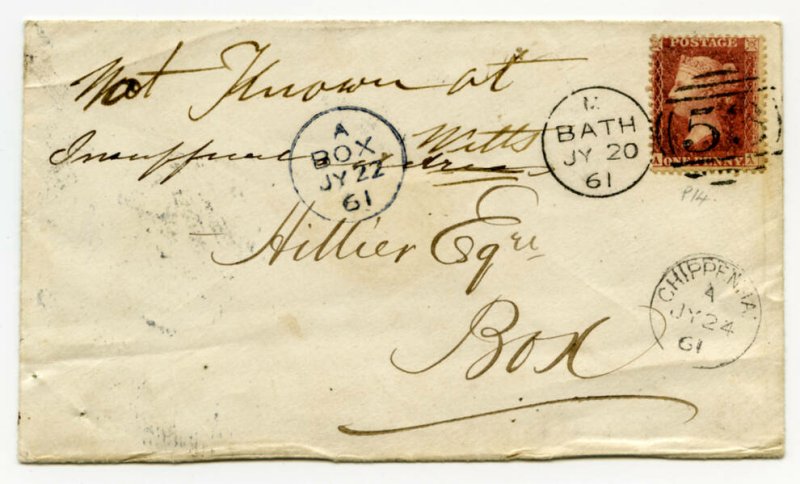 Not Known at
Insufficient address
Wilts
Hillier Esqre
Box
A
BOX
JY 22
61
M
BATH
JY 20
61
POSTAGE
53
A ONE PENNY A
P14.
CHIPPENHA
A
JY 24
61